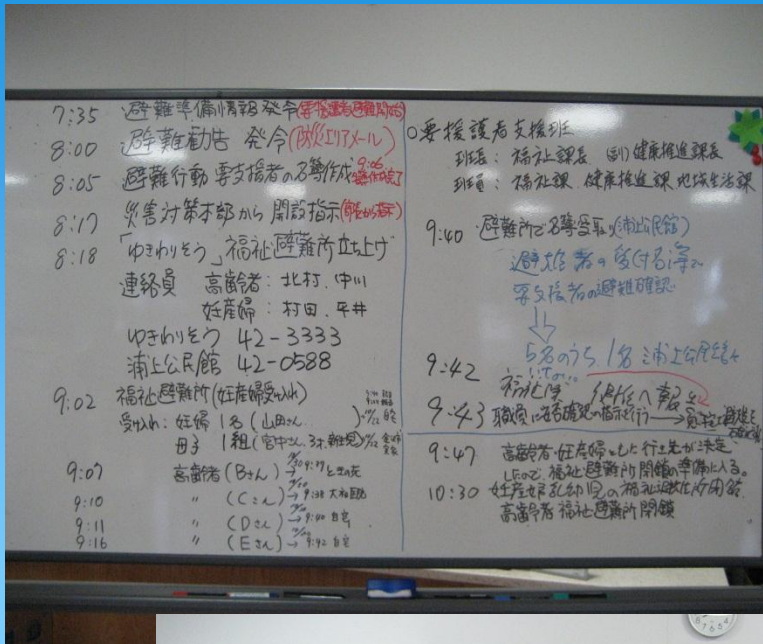 7:35 避難準備情報発令(要援護者避難開始)
8:00 避難勧告 発令(防災エリアメール)
8:05 避難行動要支援者の名簿作成 9:06
8:17 災害対策本部から開設指示
8:18 「ゆきわりそう」福祉避難所立ち上げ
連絡員 高齢者:北村、中川
妊産婦:村田、平井
ゆきわりそう 42-3333
浦上公民館 42-0588
9:02 福祉避難所(妊産婦受け入れ)
受け入れ:妊婦 1名(山田さん
母子 1組(宮中さん、3才、新生児)
9:07 高齢者(Bさん)→
9:10 〃 (Cさん)→ 9:38
9:11 〃 (Dさん)→ 9:40 自宅
9:16 〃 (Eさん)→ 9:42 自宅
○要援護者支援班
班長:福祉課長 (副)健康推進課長
班員:福祉課 健康推進課 地域生活課
9:40 避難所で名簿受取り(浦上公民館)
避難者の受付名簿で
要支援者の避難確認
⇓
9:42 5名のうち、1名 浦上公民館に
いない
9:43 職員に安否確認の指示を行う→
9:47 高齢者・妊産婦ともに行き先が決定
したので、福祉避難所閉鎖の準備に入る。
10:30 妊産婦乳幼児の福祉避難所閉鎖
高齢者福祉避難所閉鎖